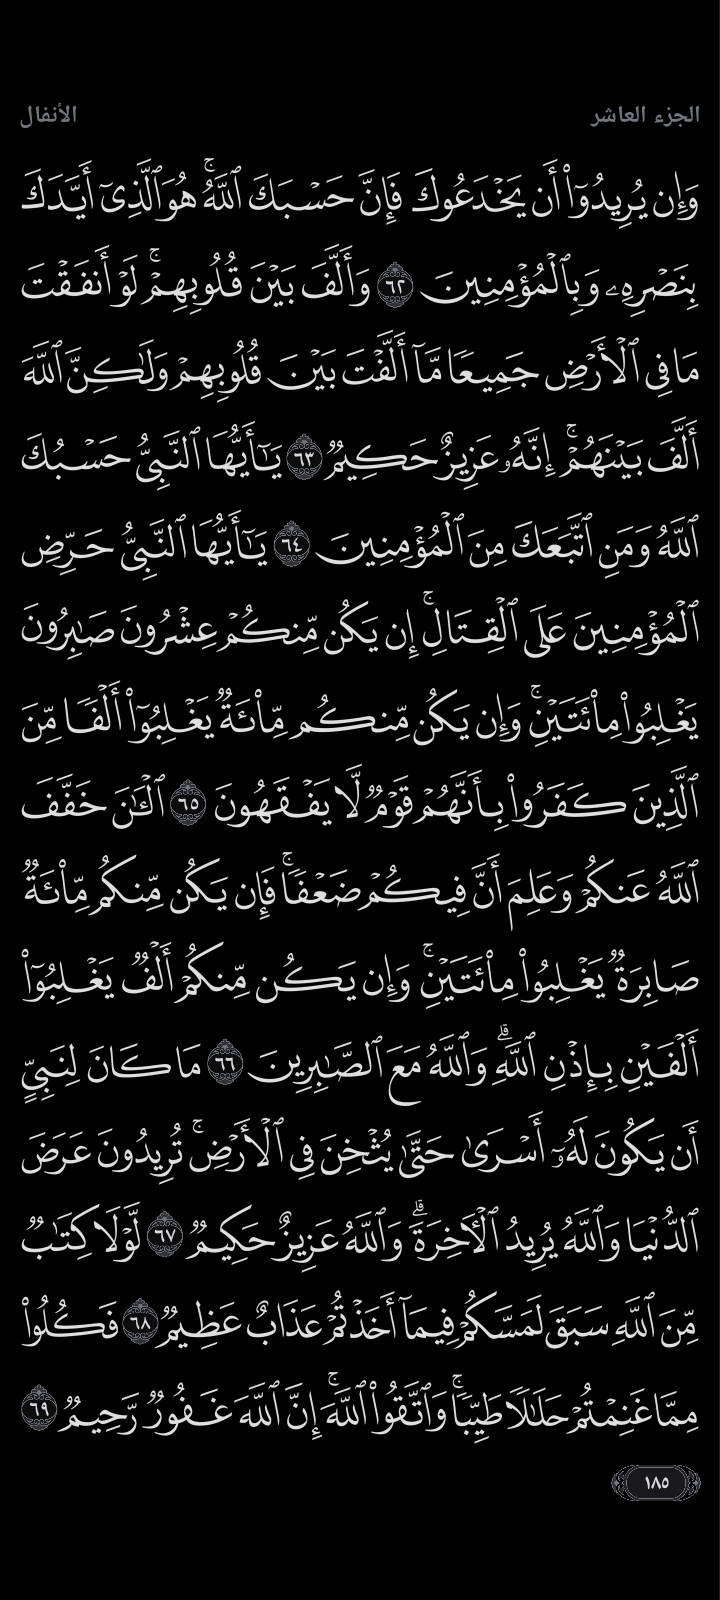 الجزء العاشر
الأنفال
وَإِن يُرِيدُوٓا۟ أَن يَخْدَعُوكَ فَإِنَّ حَسْبَكَ ٱللَّهُ ۚ هُوَ ٱلَّذِىٓ أَيَّدَكَ
بِنَصْرِهِۦ وَبِٱلْمُؤْمِنِينَ ٦٢ وَأَلَّفَ بَيْنَ قُلُوبِهِمْ ۚ لَوْ أَنفَقْتَ
مَا فِى ٱلْأَرْضِ جَمِيعًا مَّآ أَلَّفْتَ بَيْنَ قُلُوبِهِمْ وَلَـٰكِنَّ ٱللَّهَ
أَلَّفَ بَيْنَهُمْ ۚ إِنَّهُۥ عَزِيزٌ حَكِيمٌ ٦٣ يَـٰٓأَيُّهَا ٱلنَّبِىُّ حَسْبُكَ
ٱللَّهُ وَمَنِ ٱتَّبَعَكَ مِنَ ٱلْمُؤْمِنِينَ ٦٤ يَـٰٓأَيُّهَا ٱلنَّبِىُّ حَرِّضِ
ٱلْمُؤْمِنِينَ عَلَى ٱلْقِتَالِ ۚ إِن يَكُن مِّنكُمْ عِشْرُونَ صَـٰبِرُونَ
يَغْلِبُوا۟ مِا۟ئَتَيْنِ ۚ وَإِن يَكُن مِّنكُم مِّا۟ئَةٌ يَغْلِبُوٓا۟ أَلْفًا مِّنَ
ٱلَّذِينَ كَفَرُوا۟ بِأَنَّهُمْ قَوْمٌ لَّا يَفْقَهُونَ ٦٥ ٱلْـَٔـٰنَ خَفَّفَ
ٱللَّهُ عَنكُمْ وَعَلِمَ أَنَّ فِيكُمْ ضَعْفًا ۚ فَإِن يَكُن مِّنكُم مِّا۟ئَةٌ
صَابِرَةٌ يَغْلِبُوا۟ مِا۟ئَتَيْنِ ۚ وَإِن يَكُن مِّنكُمْ أَلْفٌ يَغْلِبُوٓا۟
أَلْفَيْنِ بِإِذْنِ ٱللَّهِ ۗ وَٱللَّهُ مَعَ ٱلصَّـٰبِرِينَ ٦٦ مَا كَانَ لِنَبِىٍّ
أَن يَكُونَ لَهُۥٓ أَسْرَىٰ حَتَّىٰ يُثْخِنَ فِى ٱلْأَرْضِ ۚ تُرِيدُونَ عَرَضَ
ٱلدُّنْيَا وَٱللَّهُ يُرِيدُ ٱلْـَٔاخِرَةَ ۗ وَٱللَّهُ عَزِيزٌ حَكِيمٌ ٦٧ لَّوْلَا كِتَـٰبٌ
مِّنَ ٱللَّهِ سَبَقَ لَمَسَّكُمْ فِيمَآ أَخَذْتُمْ عَذَابٌ عَظِيمٌ ٦٨ فَكُلُوا۟
مِمَّا غَنِمْتُمْ حَلَـٰلًا طَيِّبًا ۚ وَٱتَّقُوا۟ ٱللَّهَ ۚ إِنَّ ٱللَّهَ غَفُورٌ رَّحِيمٌ ٦٩
١٨٥